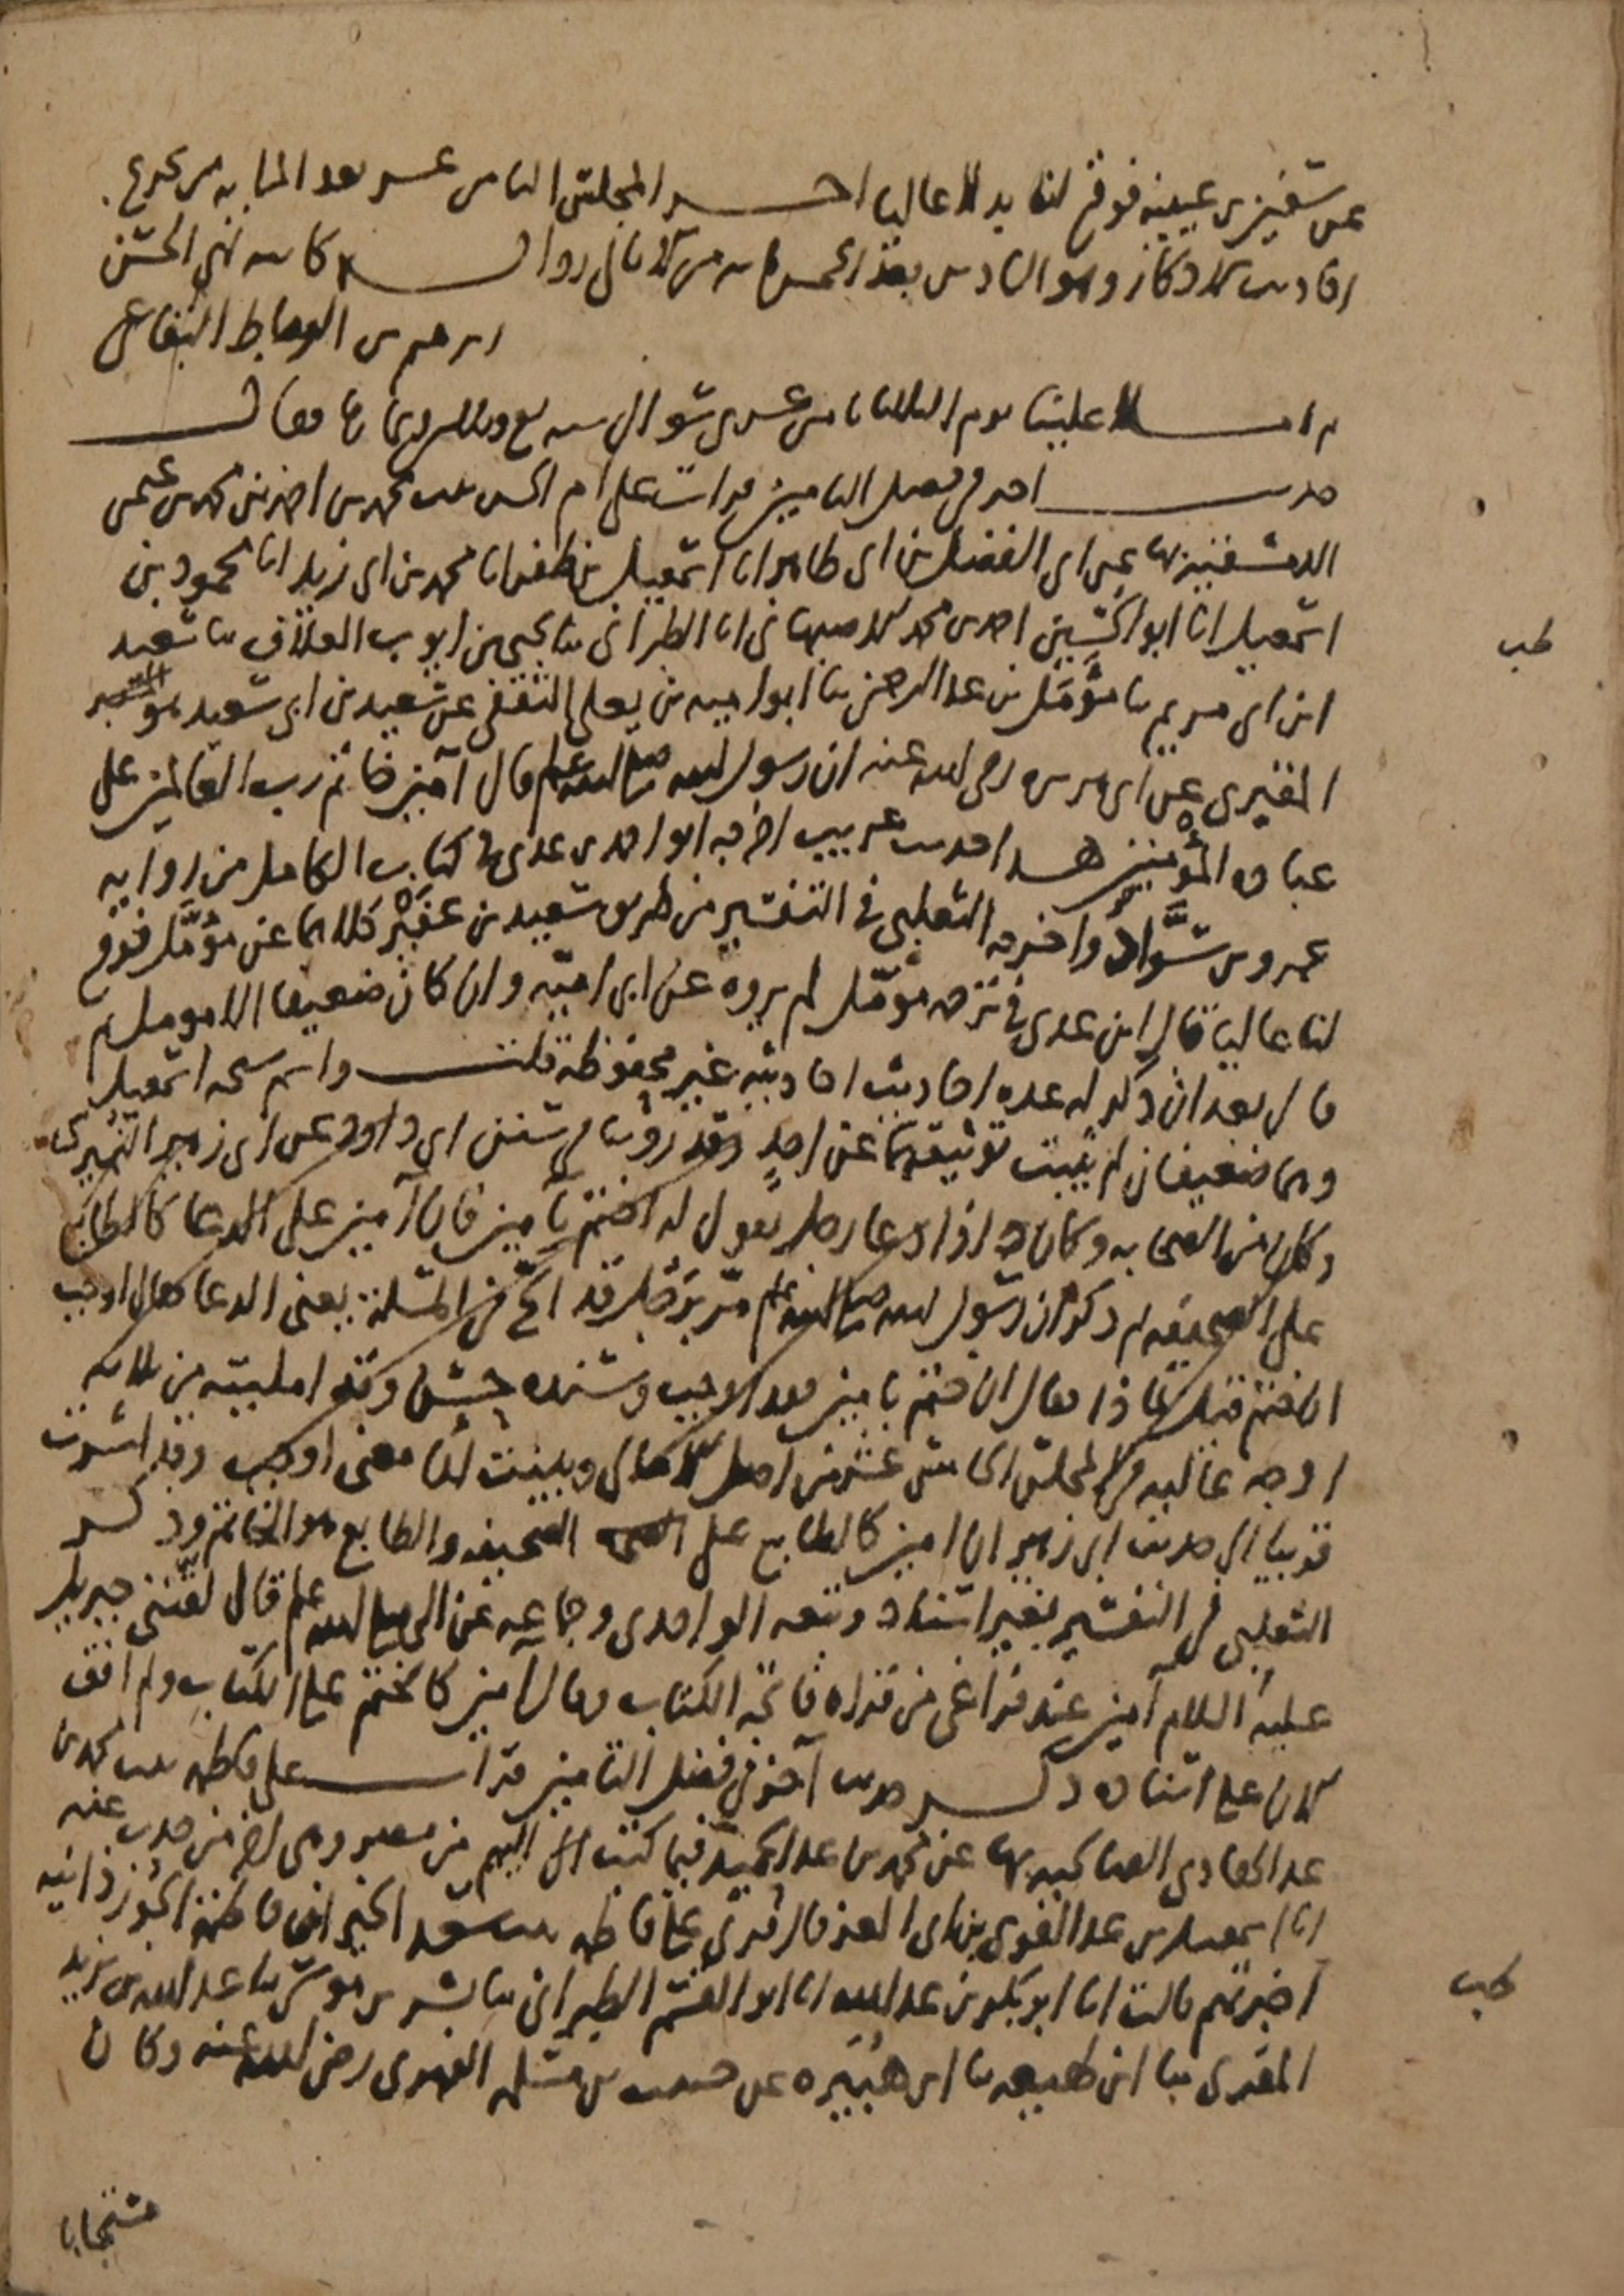 عن سفين بن عيينة فوقع لنا بدلا عاليا آخر المجلس الثامن عشر بعد المايه من تخريج
احاديث الاذكار وهو السادس بعد الخمسمايه من الامالي رواية كاتبه ابي الحسن
ابرهيم بن البقاعي
ثم املا علينا يوم الثلاثا ثامن عشري شوال سنه سبع وثلاثين وثمانمايه فقال
حديث آخر في فضل التامين قرات على ام الحسن بنت محمد بن احمد بن محمد بن عثمن
الدمشقيه بها عن ابي الفضل بن ابي طاهر انا اسمعيل بن ظفر انا محمد بن ابي زيد انا محمود بن
اسمعيل انا ابو الحسين احمد بن محمد الاصبهاني انا الطبراني ثنا يحيى بن ايوب العلاف ثنا سعيد
طب
ابن ابي مريم ثنا مؤمل بن عبد الرحمن ثنا ابو اميه بن يعلى الثقفي عن سعيد بن ابي سعيد هو
المقبري عن ابي هريره رضي الله عنه ان رسول الله صلى الله عليه وسلم قال آمين خاتم رب العالمين على
عباده المؤمنين هذا حديث غريب اخرجه ابو احمد بن عدي في كتاب الكامل من روايه
عمرو بن سواد واخرجه الثعلبي في التفسير من طريق سعيد بن عفير كلاهما عن مؤمل فوقع
لنا عاليا قال ابن عدي في ترجمه مؤمل لم يروه عن ابي اميه وان كان ضعيفا الا مومل ثم
قال بعد ان ذكر له عده احاديث احاديثه غير محفوظه قلت واسم شيخه اسمعيل
وهما ضعيفان لم يثبت توثيقهما عن احد وقد روينا في سنن ابي داود عن ابي زهير النميري
وكان من الصحابه وكان اذا دعا رجل يقول له اختم بآمين فان آمين على الدعا كالطابع
على الصحيفه ثم ذكر ان رسول الله صلى الله عليه وسلم مر برجل قد الح في المسلة يعني الدعا فقال اوجب
ان ختم قيل بماذا فقال ان ختم بامين فقد اوجب وسنده حسن وقد امليته من ثلاثه
اوجه عاليه في المجلس الخامس عشر من اصل الامالي وبينت لنا معنى اوجب وقد اشرت
قريبا الى حديث ابي زهير ان امين كالطابع على الصحيفه والطابع هو الخاتم وذكر
الثعلبي في التفسير بغير اسناد وتبعه الواحدي وجماعه عن النبي صلى الله عليه وسلم قال لقنني جبريل
عليه السلام آمين عند فراغي من قراه فاتحه الكتاب وقال آمين كالختم على الكتاب ولم اقف
الان على اسناده ذكر حديث آخر في فضل التامين قرات على فاطمه بنت محمد بن
عبد الهادي الصالحيه بها عن محمد بن عبد الحميد فيما كتب الى اليهم من مصر وهي اخر من حدث عنه
انا اسمعيل بن عبد القوي بن ابي العز قال قري على فاطمه بنت سعد الخير ان فاطمه الجوزذانيه
اخبرتهم قالت انا ابو بكر بن عبد الله انا ابو القسم الطبراني ثنا بشر بن موسى ثنا عبد الله بن يزيد
طب
المقري ثنا ابن لهيعه ثنا ابن هبيره عن حبيب بن مسلمه الفهري رضي الله عنه وكان
مستجابا